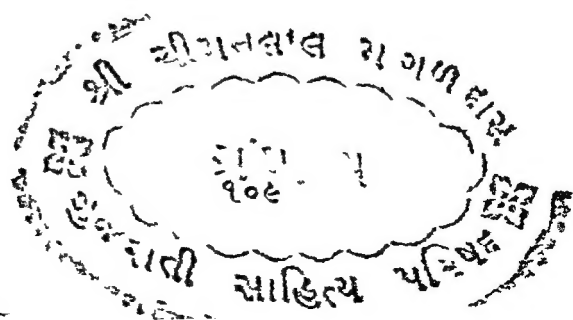 શ્રી ચીમનલાલ મંગળદાસ
૧૦૯
ગુજરાતી સાહિત્ય પરિષદ